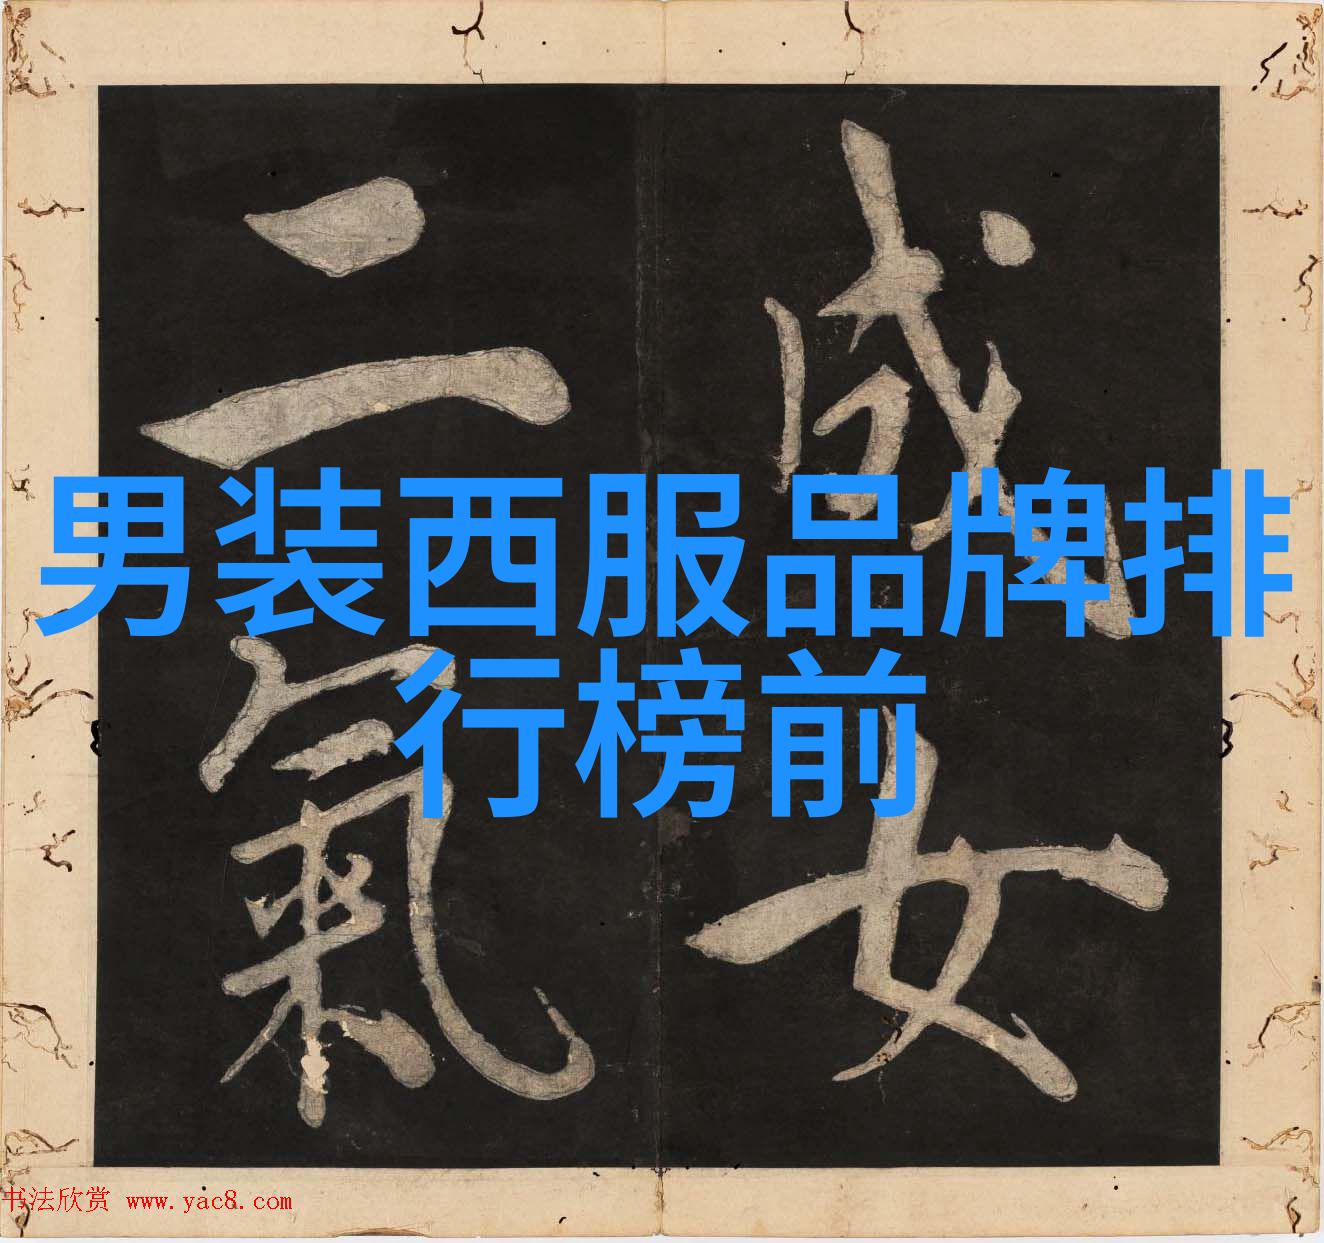 男装西服品牌排
行榜前
成女
二氣
书法欣赏 www.yac8.com